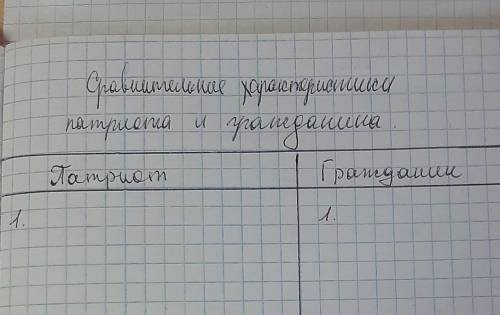 Сравнительные характеристики
патриота и гражданина.
Патриот Гражданин
1. 1.